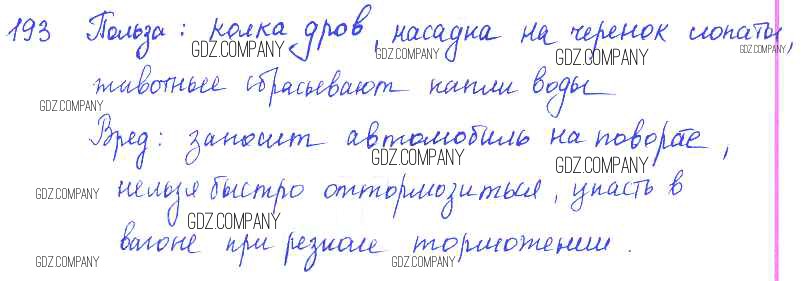 193 Польза: колка дров, насадка на черенок лопаты,
GDZ.COMPANY GDZ.COMPANY GDZ.COMPANY GDZ.COMPANY
животные сбрасывают капли воды
GDZ.COMPANY
Вред: заносит автомобиль на повороте,
GDZ.COMPANY GDZ.COMPANY
нельзя быстро оттормозиться, упасть в
GDZ.COMPANY GDZ.COMPANY
вагоне при резком торможении.
GDZ.COMPANY GDZ.COMPANY